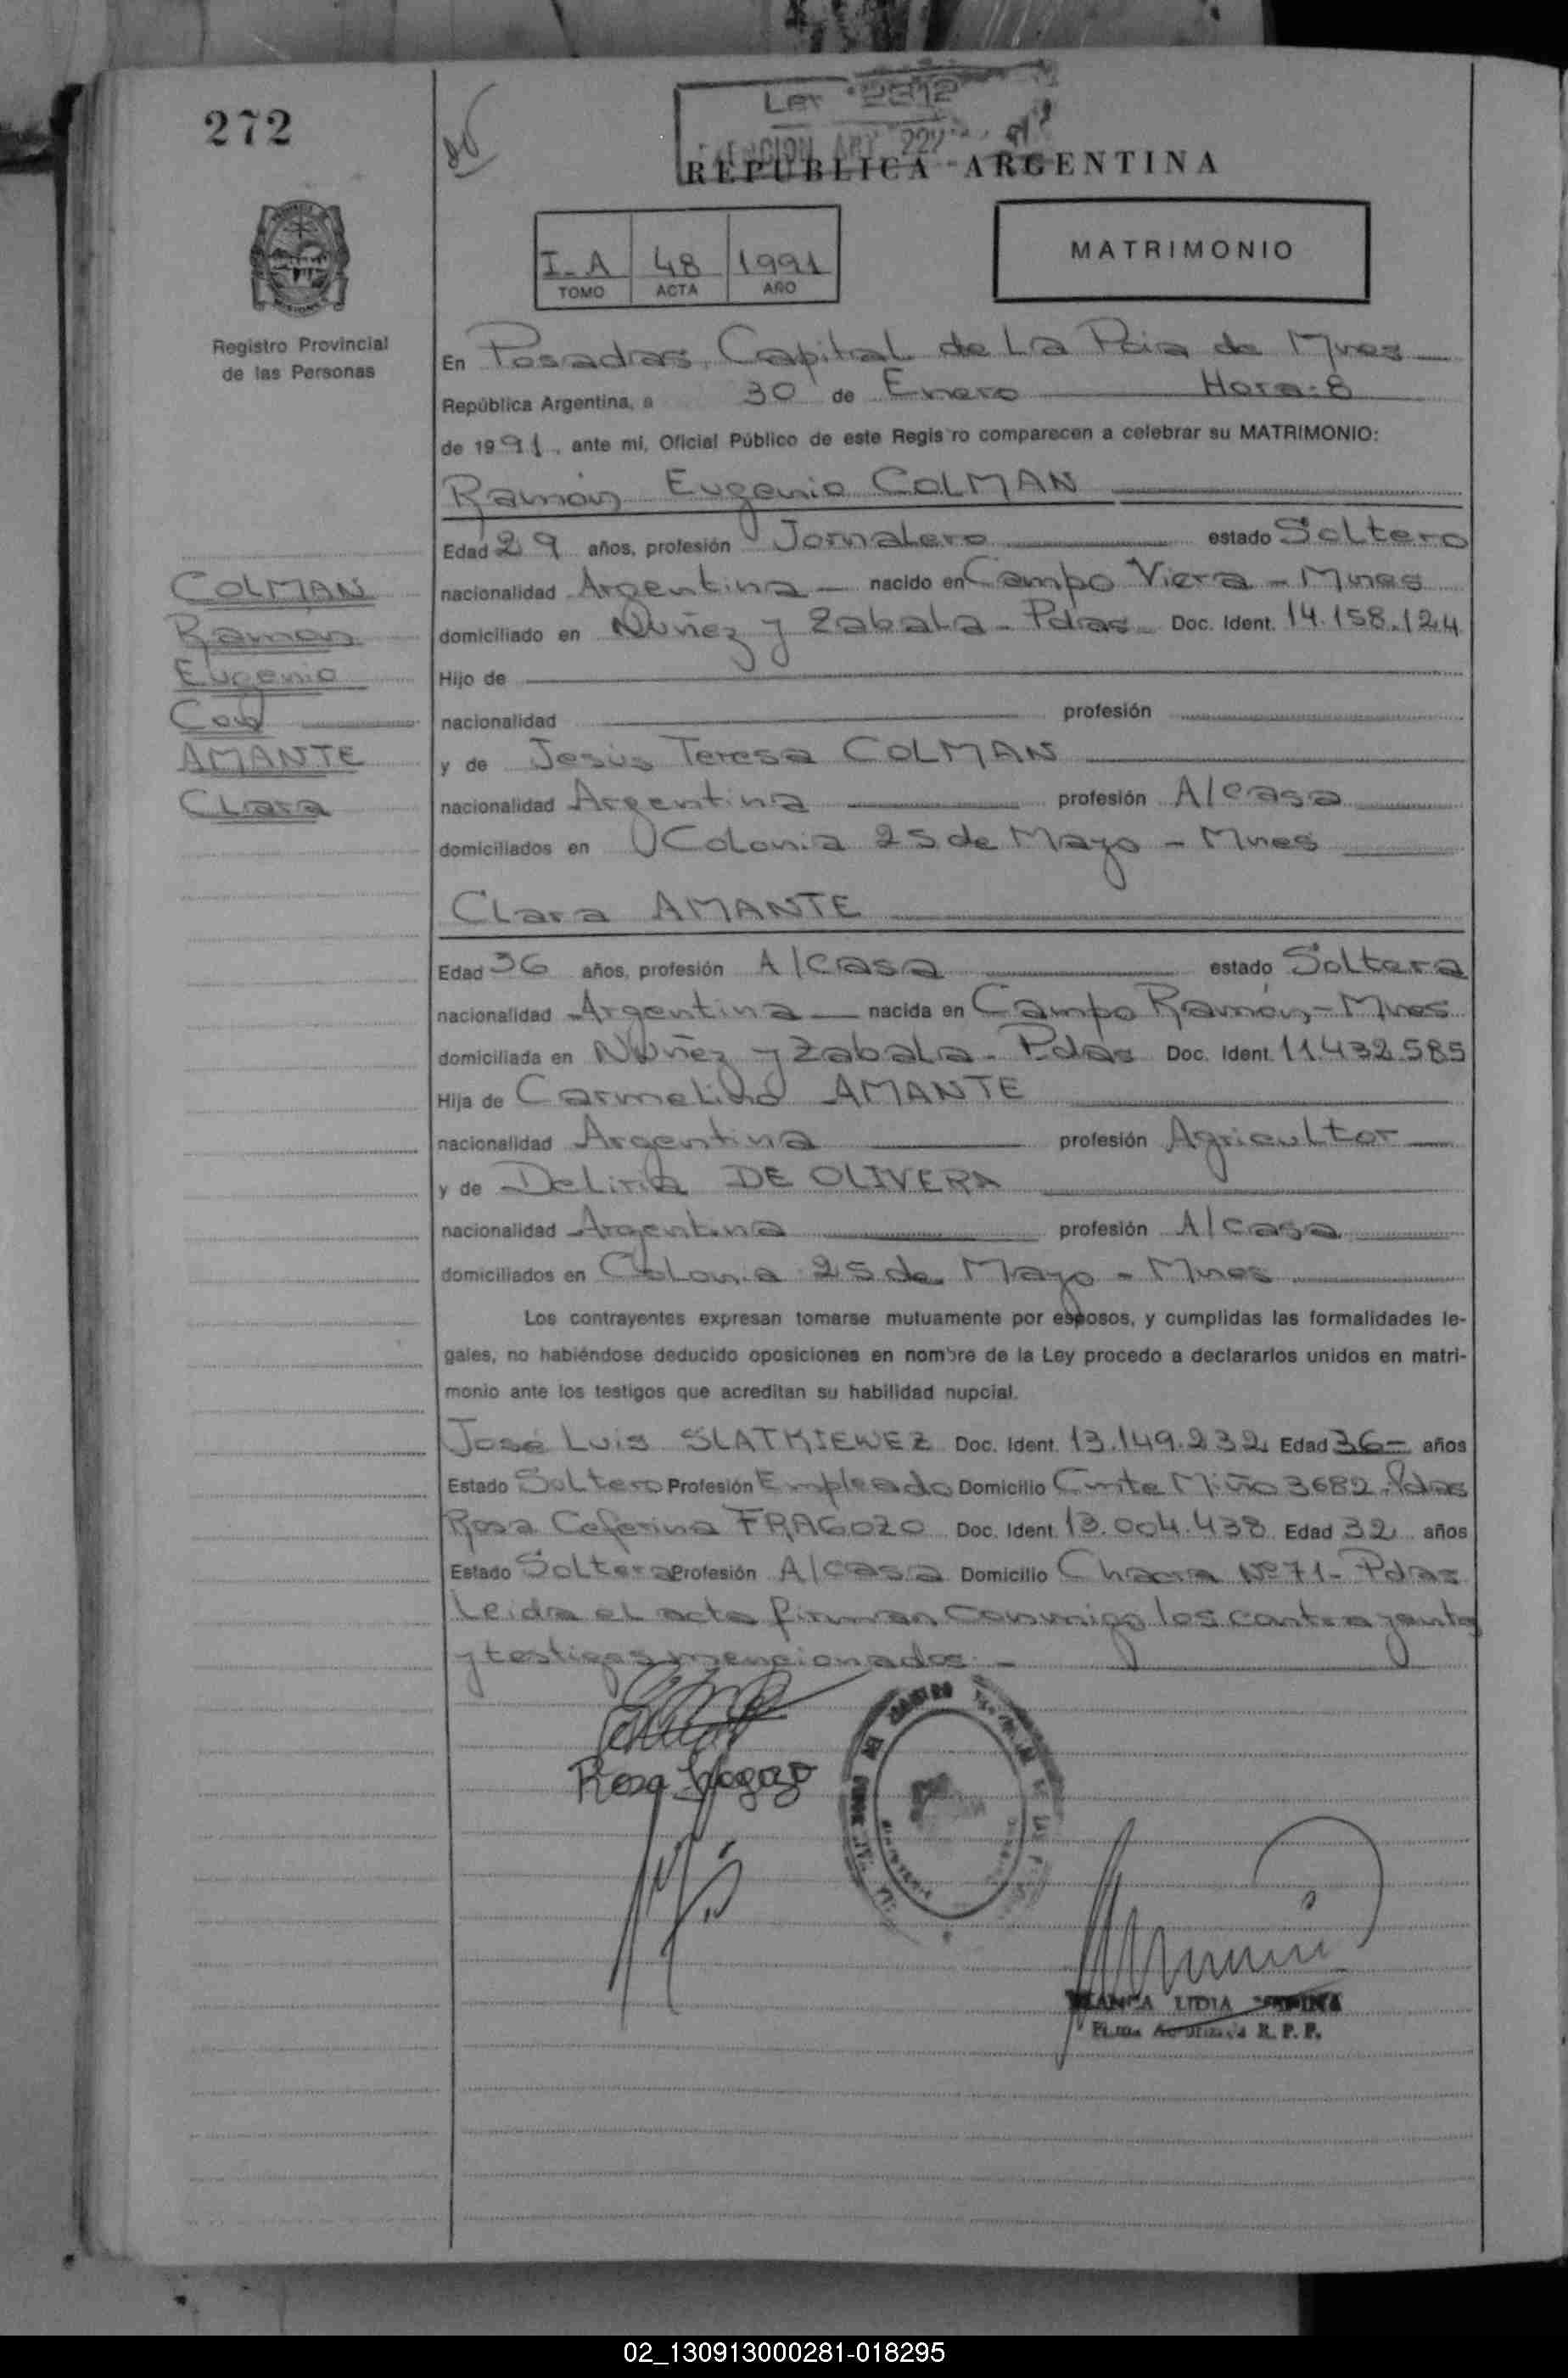 272
Ley 2312
EXENCION ART. 227
REPUBLICA ARGENTINA
I-A 48 1991
TOMO ACTA AÑO
MATRIMONIO
Registro Provincial
de las Personas
En Posadas, Capital de La Pcia de Mnes
República Argentina, a 30 de Enero Hora: 8
de 1991, ante mi, Oficial Público de este Registro comparecen a celebrar su MATRIMONIO:
Ramón Eugenio COLMAN
Edad 29 años, profesión Jornalero estado Soltero
nacionalidad Argentina nacido en Campo Viera - Mnes
domiciliado en Nuñez y Zabala - Pdas - Doc. Ident. 14.158.124
Hijo de
nacionalidad profesión
y de Jesús Teresa COLMAN
nacionalidad Argentina profesión A/casa
domiciliados en Colonia 25 de Mayo - Mnes
COLMAN
Ramón
Eugenio
Con
AMANTE
Clara
Clara AMANTE
Edad 36 años, profesión A/casa estado Soltera
nacionalidad Argentina nacida en Campo Ramón - Mnes
domiciliada en Nuñez y Zabala - Pdas Doc. Ident. 11.432.585
Hija de Carmelino AMANTE
nacionalidad Argentina profesión Agricultor
y de Deliria DE OLIVERA
nacionalidad Argentina profesión A/casa
domiciliados en Colonia 25 de Mayo - Mnes
Los contrayentes expresan tomarse mutuamente por esposos, y cumplidas las formalidades le-
gales, no habiéndose deducido oposiciones en nombre de la Ley procedo a declararlos unidos en matri-
monio ante los testigos que acreditan su habilidad nupcial.
José Luis SLATKIEWEZ Doc. Ident. 13.149.232 Edad 36- años
Estado Soltero Profesión Empleado Domicilio Cmte Miño 3682 - Pdas
Rosa Ceferina FRAGOZO Doc. Ident. 13.004.438 Edad 32 años
Estado Soltera Profesión A/casa Domicilio Chacra Nº 71 - Pdas
Leida el acta firman conmigo los contrayentes
y testigos mencionados -
Rosa Fragozo
BLANCA LIDIA
Firma Autorizada R. P. P.
02_130913000281-018295